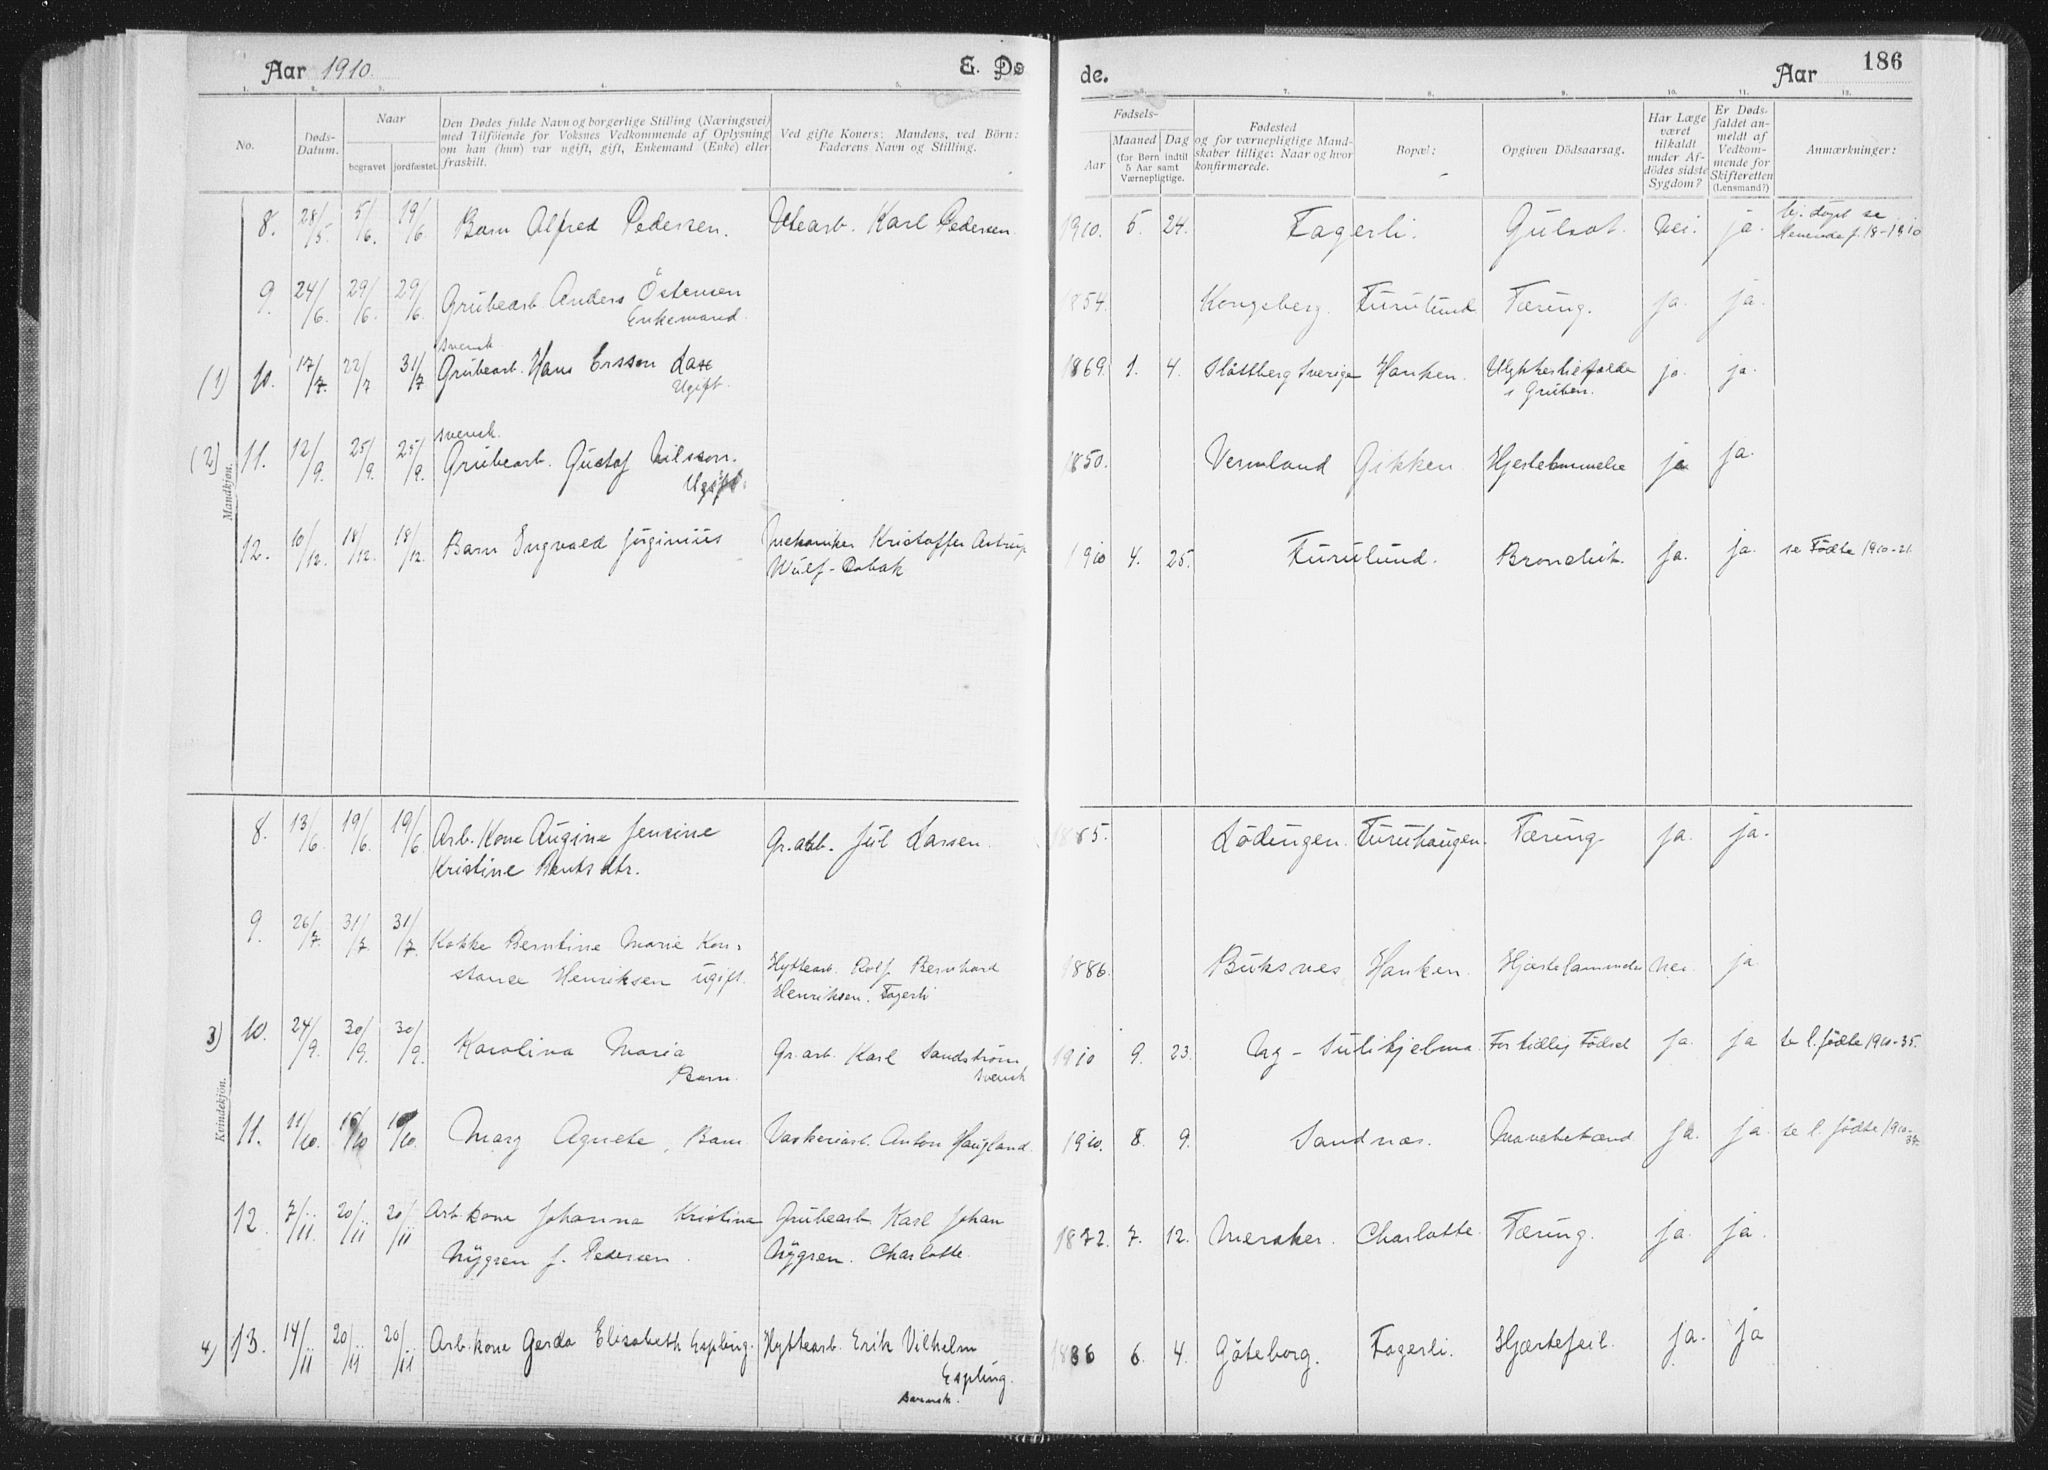 Aar 1910.
E. Dö
de.
Aar
186
1. 2. 3. 4. 5. 6. 7. 8. 9. 10. 11. 12.
No.
Döds-
Datum.
Naar
begravet
jordfæstet.
Den Dødes fulde Navn og borgerlige Stilling (Næringsvei)
med Tilföiende for Voksnes Vedkommende af Oplysning
om han (hun) var ugift, gift, Enkemand (Enke) eller
fraskilt.
Ved gifte Koners: Mandens, ved Börn:
Faderens Navn og Stilling.
Fødsels-
Aar
Maaned
Dag
(for Børn indtil
5 Aar samt
Værnepligtige.
Fødested
og for værnepligtige Mand-
skaber tillige: Naar og hvor
konfirmerede.
Bopæl:
Opgiven Dödsaarsag.
Har Læge
været
tilkaldt
under Af-
dödes sidste
Sygdom?
Er Døds-
faldet an-
meldt af
Vedkom-
mende for
Skifteretten
(Lensmand?)
Anmærkninger:
Mandkjøn.
8. 28/5. 5/6. 19/6. Barn Alfred Pedersen. Utearb. Karl Pedersen. 1910. 5. 24. Fagerli. Gulsot. nei. ja. hj. døpt se
18-1910
9. 24/6. 29/6. 29/6. Grubearb. Anders Östensen 1854. Kongsberg. Furulund. Tæring. ja. ja.
Enkemand.
svensk
(1) 10. 17/7. 22/7 31/7. Grubearb. Hans Ersson Lax 1869. 1. 4. Slättberg Sverige Hanken. Ulykkestilfælde ja. ja.
Ugift. i Gruben.
svensk.
(2) 11. 12/9. 25/9. 25/9. Grubearb. Gustaf Nilsson. 1850. Vermland Gikken. Hjertelammelse ja ja.
Ugift.
12. 10/12. 18/12. 18/12. Barn Ingvald Juginius Mekaniker Kristoffer Astrup 1910 4. 25. Furulund. Bronchit. ja. ja. se Födte 1910-21.
Wulf-Dobak
Kvindekjön.
8. 13/6. 19/6. 19/6. Arb. Kone Augine Jensine Gr.arb. Jul Larsen. 1885. Lödingen. Furuhaugen. Tæring. ja. ja.
Kristine Bentsdtr.
9. 26/7. 31/7. 31/7. Kokke Berntine Marie Kon-
stance Henriksen ugift. Hyttearb. Rolf Bernhard 1886. Buksnes Hanken. Hjertelammelse nei. ja.
Henriksen. Fagerli
3) 10. 24/9. 30/9. 30/9. Karolina Maria Gr.arb. Karl Sandström 1910 9. 23. Ny-Sulitjelma. For tidlig Födsel ja. ja se l. födte 1910-35.
Barn. svensk
11. 11/10. Mary Agnete, Barn Vaskeriarb. Anton Haugland. 1910. 8. 9. Sandnes. Mavebetænd ja. ja. se l. födte 1910-
37.
12. 7/11. 20/11 20/11 Arb.kone Johanna Kristina Grubearb. Karl Johan 1872. 7. 12. Meraker. Charlotte. Tæring. ja. ja.
Nygren f. Pedersen. Nygren. Charlotte.
4) 13. 14/11 20/11 20/11 Arb.kone Gerda Elisabeth Espling. Hyttearb. Erik Vilhelm 1886 6. 4. Göteborg. Fagerli. Hjertefeil. ja. ja
Espling.
svensk.